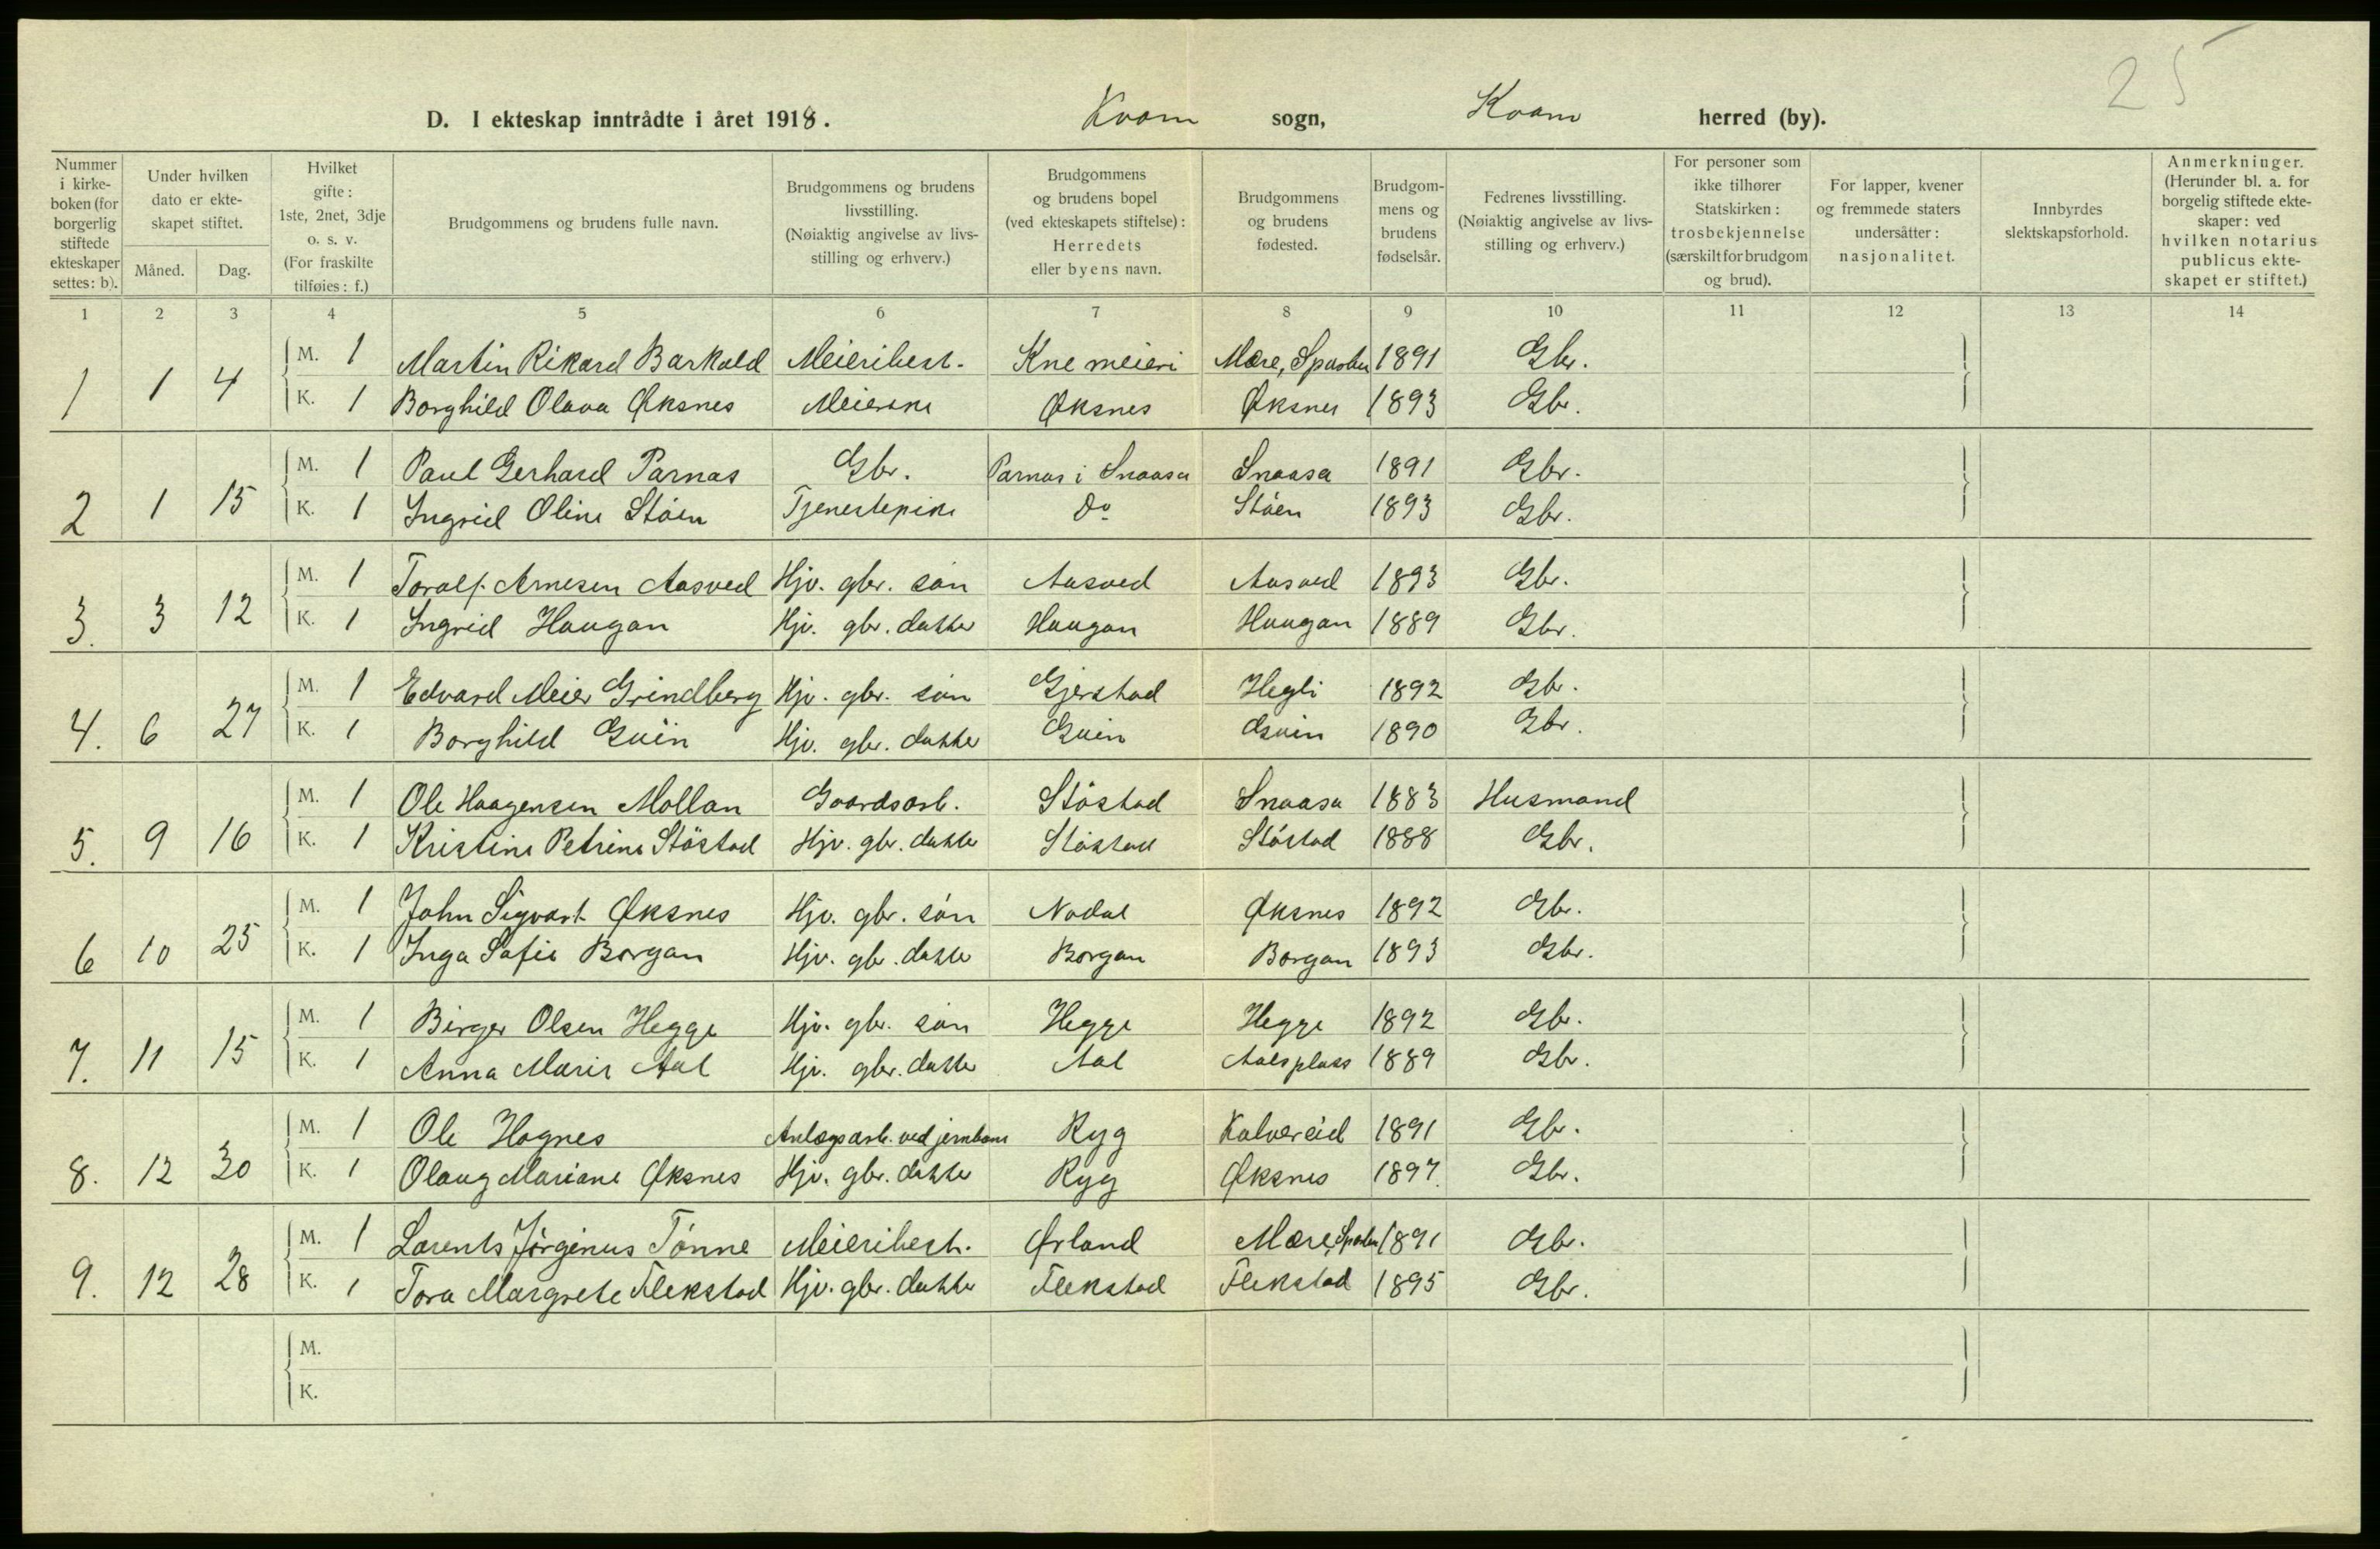 25
D. I ekteskap inntrådte i året 1918. Kvam sogn, Kvam herred (by).
Nummer i kirkeboken (for borgerlig stiftede ekteskaper settes: b).
Under hvilken dato er ekteskapet stiftet.
Måned. Dag.
Hvilket gifte: 1ste, 2net, 3dje o. s. v. (For fraskilte tilføies: f.)
Brudgommens og brudens fulle navn.
Brudgommens og brudens livsstilling. (Nøiaktig angivelse av livsstilling og erhverv.)
Brudgommens og brudens bopel (ved ekteskapets stiftelse): Herredets eller byens navn.
Brudgommens og brudens fødested.
Brudgommens og brudens fødselsår.
Fedrenes livsstilling. (Nøiaktig angivelse av livsstilling og erhverv.)
For personer som ikke tilhører Statskirken: trosbekjennelse (særskilt for brudgom og brud).
For lapper, kvener og fremmede staters undersåtter: nasjonalitet.
Innbyrdes slektskapsforhold.
Anmerkninger. (Herunder bl. a. for borgelig stiftede ekteskaper: ved hvilken notarius publicus ekteskapet er stiftet.)
1 2 3 4 5 6 7 8 9 10 11 12 13 14
1 1 4 M. 1 Martin Rikard Barkald Meieribest. Kne meieri Mære, Sparbu 1891 Gbr.
K. 1 Borghild Olava Øksnes Meierske Øksnes Øksnes 1893 Gbr.
2 1 15 M. 1 Paul Gerhard Parnas Gbr. Parnas i Snaasa Snaasa 1891 Gbr.
K. 1 Ingrid Oline Støen Tjenestepike Do Støen 1893 Gbr.
3. 3 12 M. 1 Toralf Arnesen Aasved Hjv. gbr. søn Aasved Aasved 1893 Gbr.
K. 1 Ingrid Haugan Hjv. gbr. datter Haugan Haugan 1889 Gbr.
4. 6 27 M. 1 Edvard Meier Grindberg Hjv. gbr. søn Gjerstad Hegli 1892 Gbr.
K. 1 Borghild Guin Hjv. gbr. datter Guin Guin 1890 Gbr.
5. 9 16 M. 1 Ole Haagensen Mollan Gaardsarb. Støstad Snaasa 1883 Husmand
K. 1 Kristine Petrine Støstad Hjv. gbr. datter Støstad Støstad 1888 Gbr.
6 10 25 M. 1 John Sigvart Øksnes Hjv. gbr. søn Nødal Øksnes 1892 Gbr.
K. 1 Inga Sofie Borgan Hjv. gbr. datter Borgan Borgan 1893 Gbr.
7. 11 15 M. 1 Birger Olsen Hegge Hjv. gbr. søn Hegge Hegge 1892 Gbr.
K. 1 Anna Marie Aal Hjv. gbr. datter Aal Aalsplass 1889 Gbr.
8. 12 30 M. 1 Ole Hognes Anlægsarb. ved jernbane Ryg Kalvereid 1891 Gbr.
K. 1 Olaug Mariane Øksnes Hjv. gbr. datter Ryg Øksnes 1897. Gbr.
9. 12 28 M. 1 Lorents Jørginus Tønne Meieribest. Ørland Mære, Sparbu 1891 Gbr.
K. 1 Tora Margrete Flekstad Hjv. gbr. datter Flekstad Flekstad 1895 Gbr.
M.
K.